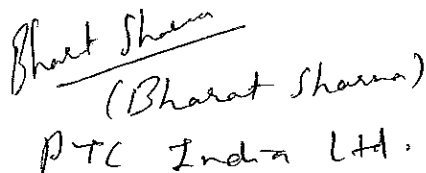 Bharat Sharma
(Bharat Sharma)
PTC India Ltd.